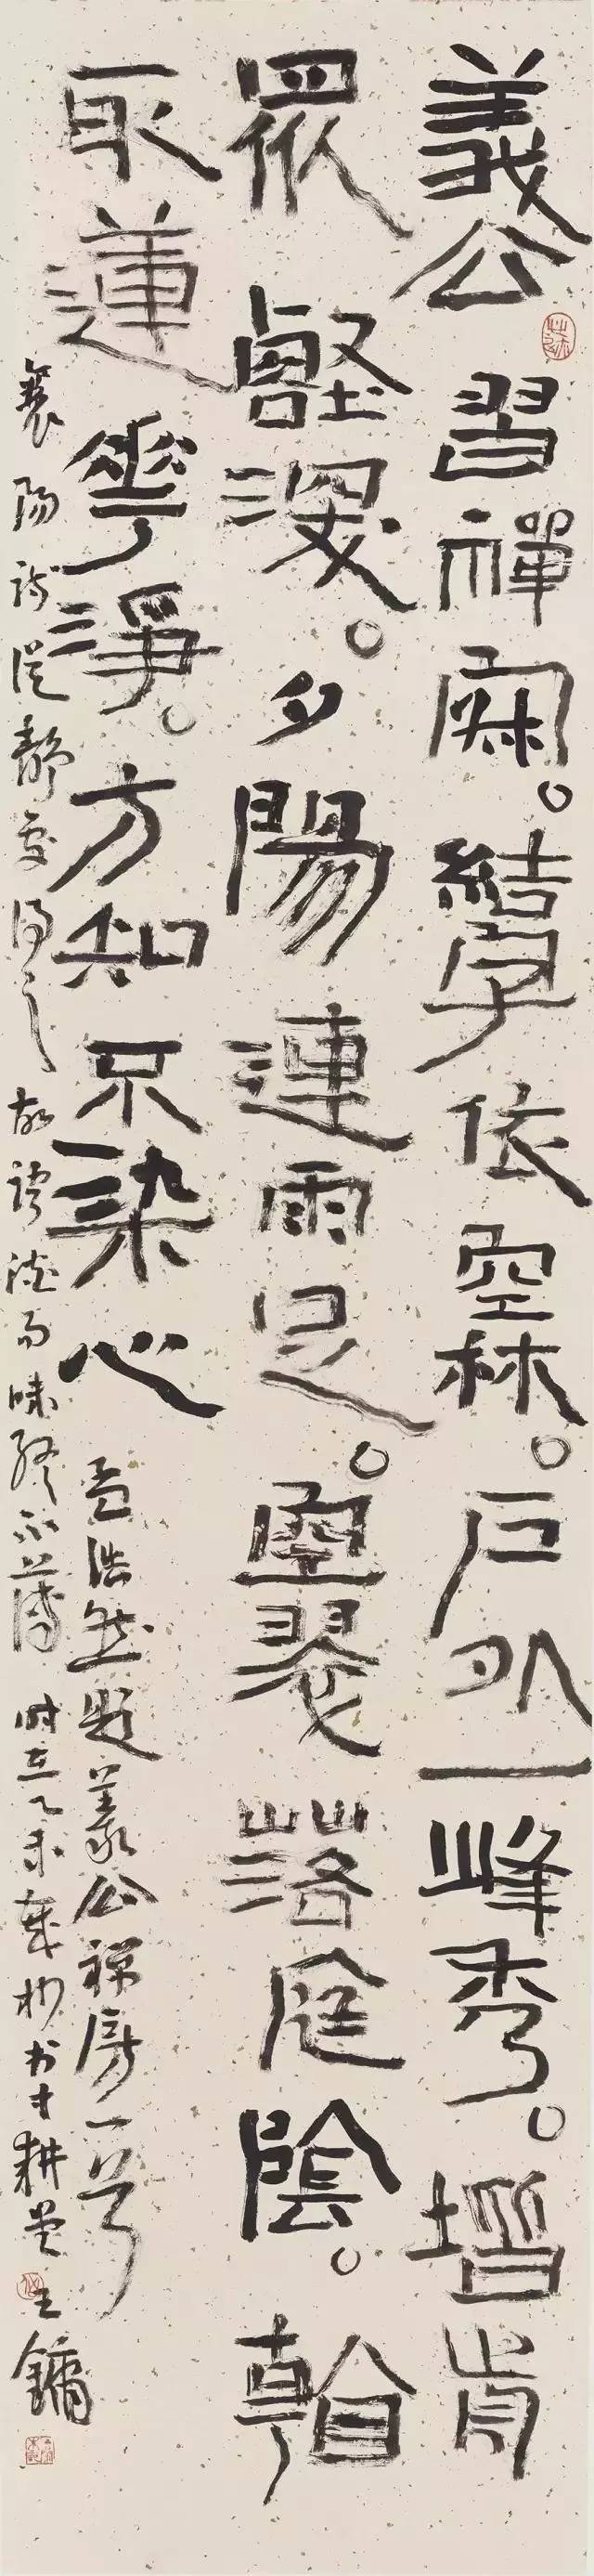 義公習禪寂。結宇依空林。户外一峰秀。堦前
眾壑深。夕陽連雨足。空翠落庭陰。看
取蓮華淨。方知不染心 孟浩然題義公禪房一首
襄陽詩從靜處得之故語淡而味終不薄 時在乙未歲杪於寸耕堂 王鏞